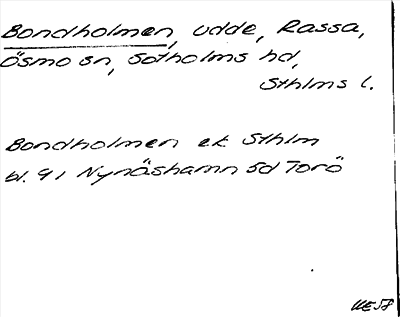 Bondholmen, udde, Rassa,
Ösmo sn, Sotholms hd,
Sthlms l.
Bondholmen ek Sthlm
bl. 91 Nynäshamn 5d Torö
KE58